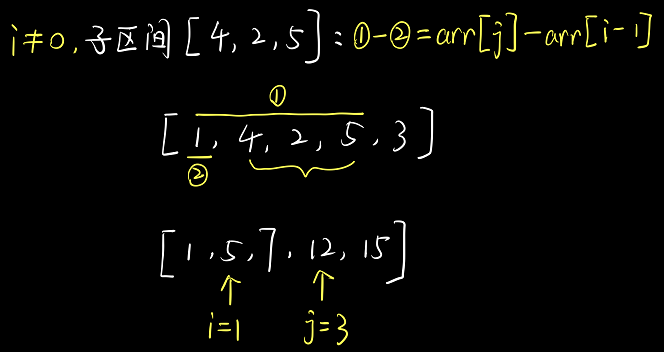 i≠0, 子区间[4,2,5]: ①-②=arr[j]-arr[i-1]
①
[1, 4, 2, 5, 3]
②
[1, 5, 7, 12, 15]
↑ ↑
i=1 j=3